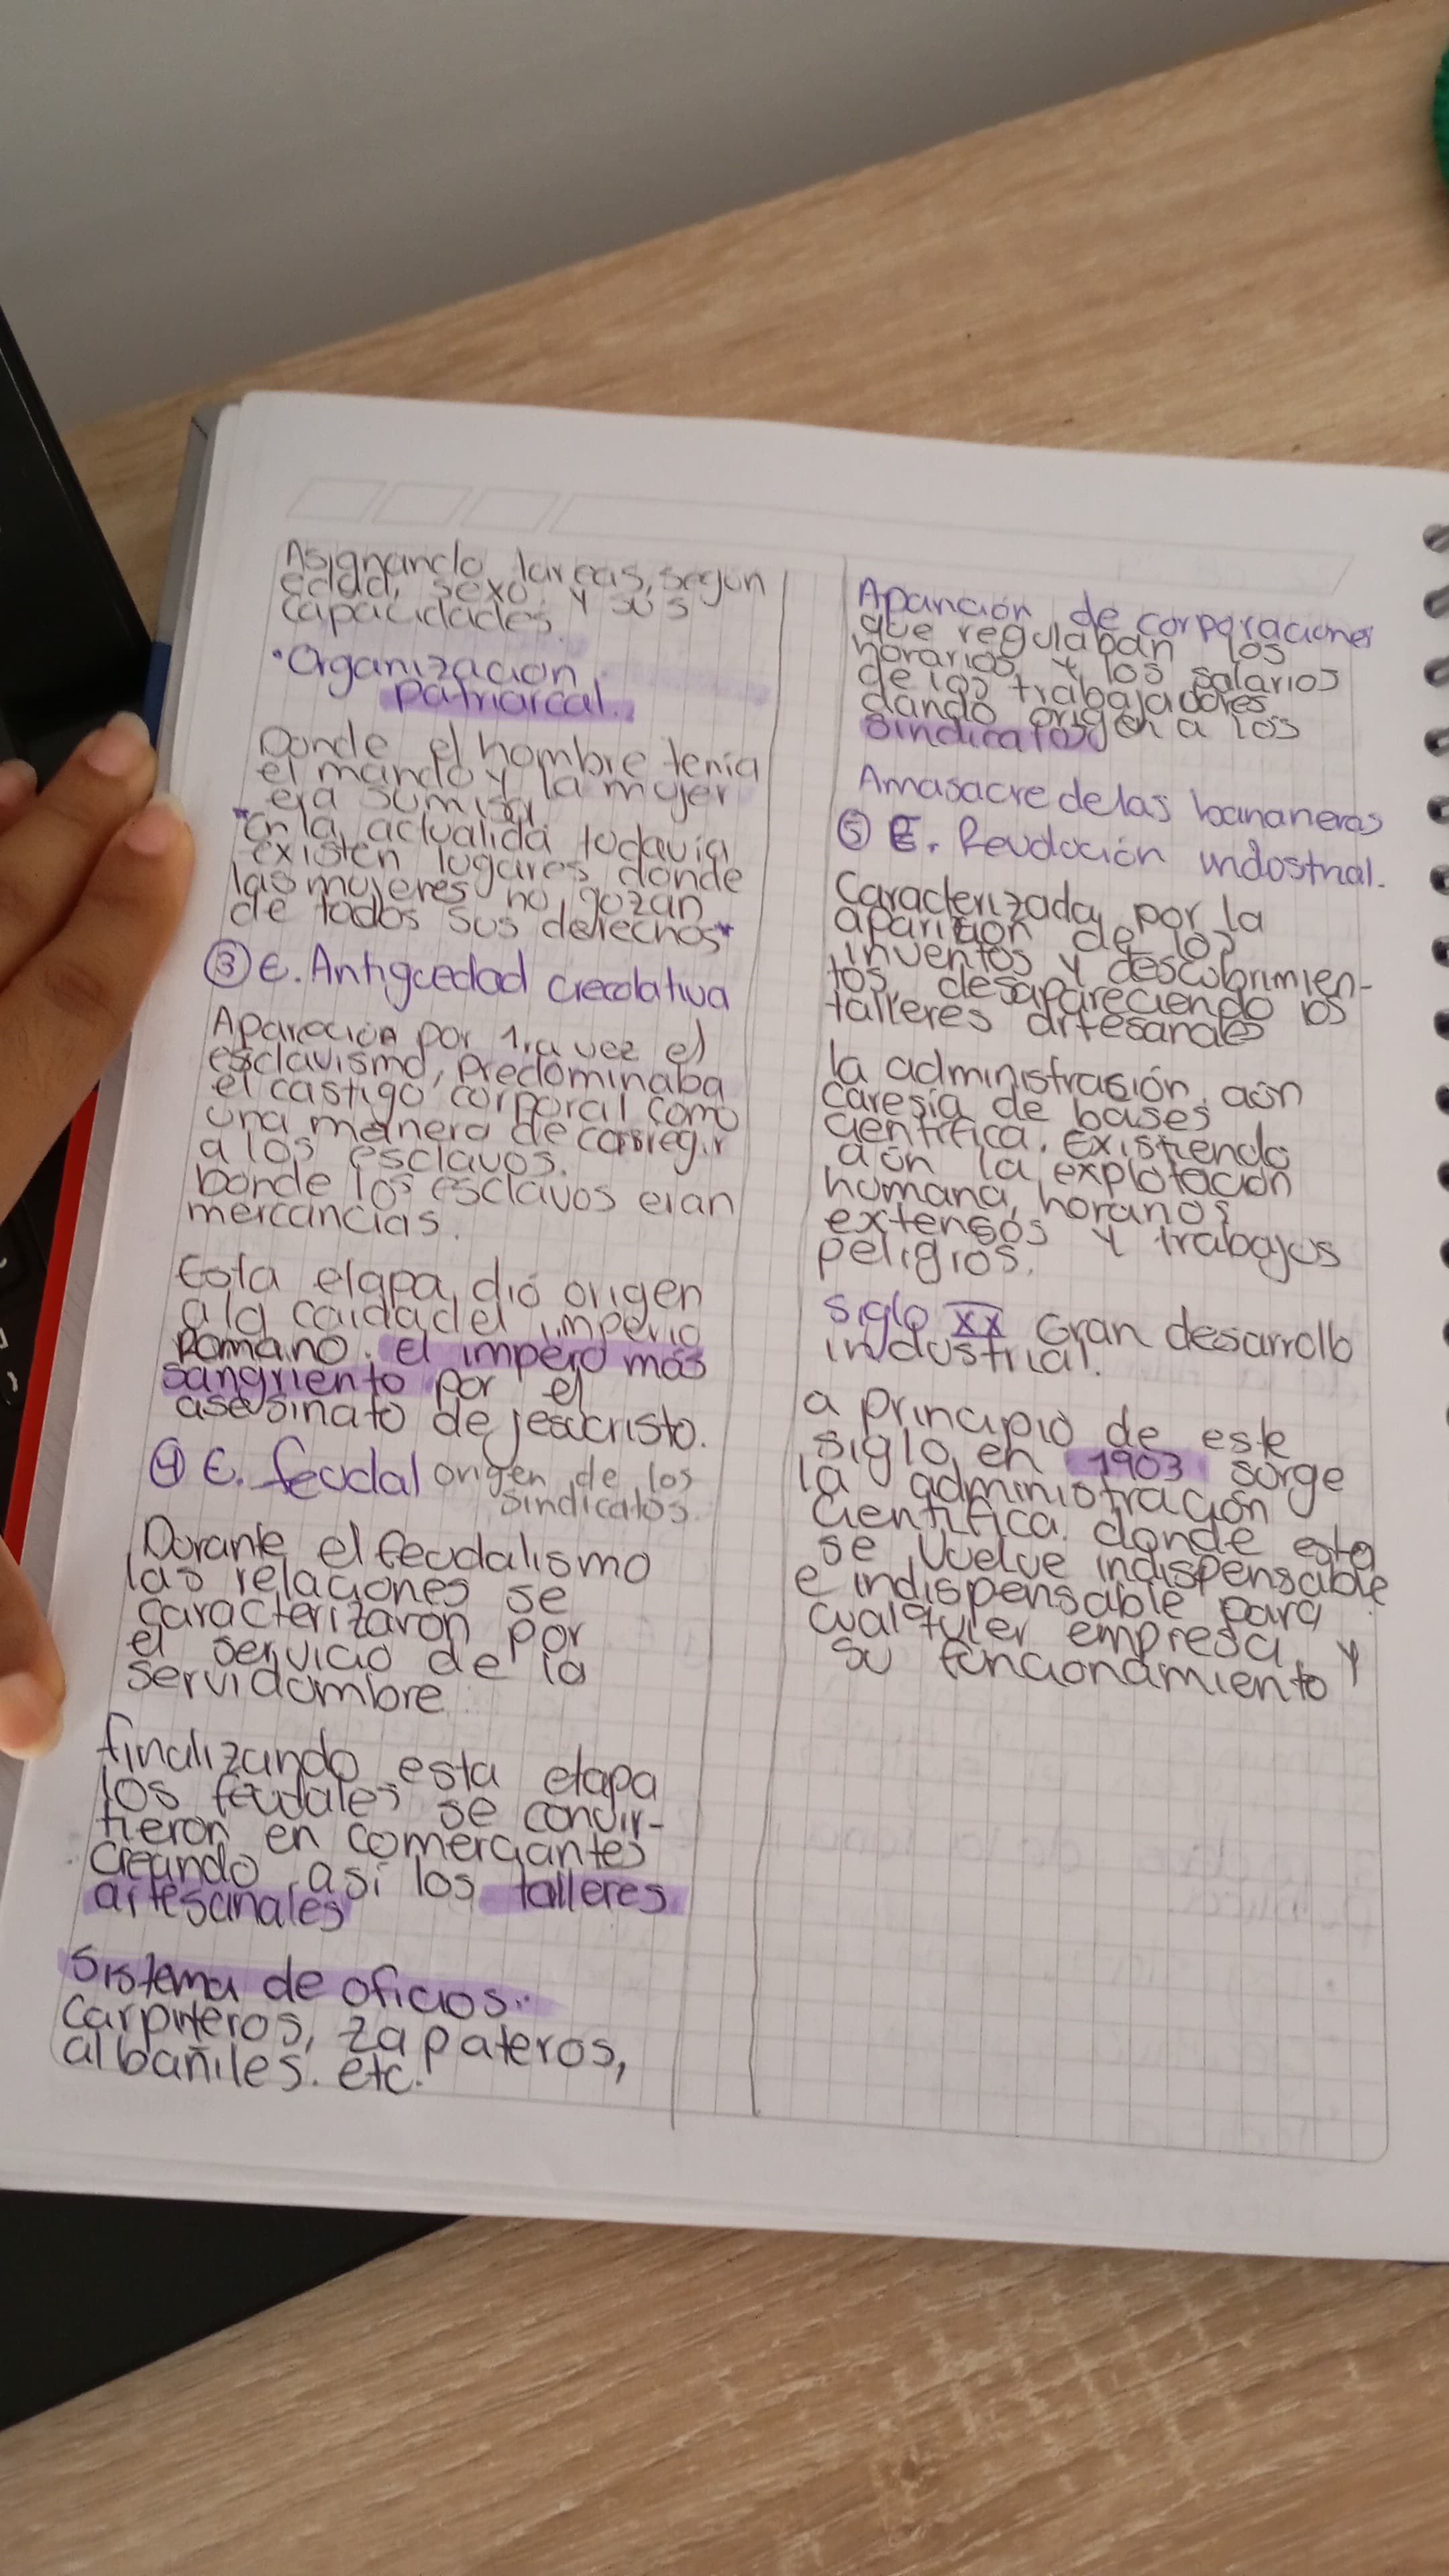 Asignando tareas, según
edad, sexo y sus
capacidades.
•Organizacion
patriarcal.
Donde el hombre tenia
el mando y la mujer
era sumisa.
*en la actualida todavia
existen lugares donde
las mujeres no gozan
de todos sus derechos*
③ E. Antiguedad
Aparecion por 1ra vez el
esclavismo, predominaba
el castigo corporal como
una manera de corregir
a los esclavos.
Donde los esclavos eran
mercancias.
Esta etapa dió origen
a la caida del imperio
Romano. el imperio más
sangriento por el
asesinato de jesucristo.
④ E. feudal origen de los
sindicatos.
Durante el feudalismo
las relaciones se
caracterizaron por
el servicio de la
servidumbre.
finalizando esta etapa
los feudales se convir-
tieron en comerciantes
creando así los talleres
artesanales
Sistema de oficios..
carpinteros, zapateros,
albañiles. etc.
Aparición de corporaciones
que regulaban los
horarios y los salarios
de los trabajadores
dando origen a los
sindicatos
Amasacre delas bananeras
⑤ E. Revolución industrial.
Caracterizada por la
aparición de los
inventos y descubrimien-
tos, desapareciendo los
talleres artesanales
la administrasión aún
caresia de bases
cientifica. Existiendo
aún la explotación
humana, horarios
extensos y trabajos
peligros.
siglo XX Gran desarrollo
industrial.
a principio de este
siglo en 1903 surge
la administración
cientifica. donde esta
se vuelve indispensable
e indispensable para
cualquier empresa y
su funcionamiento